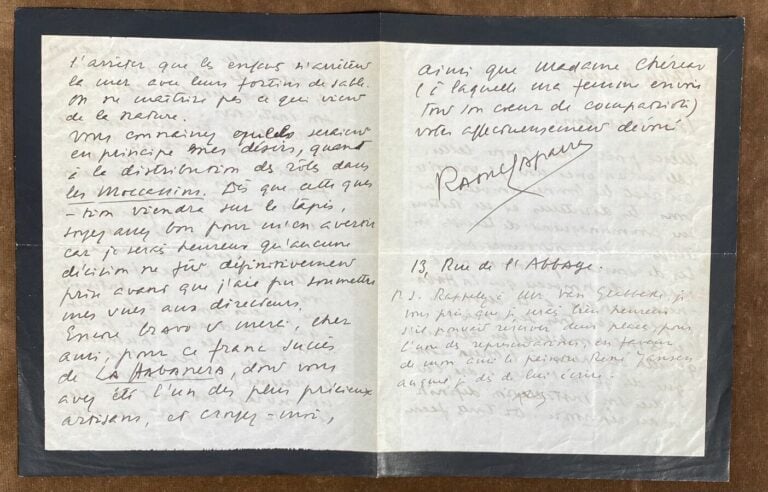 s'arrêter que les enfants n'arrêtent
la mer avec leurs fortins de sable.
On ne maîtrise pas ce qui vient
de la nature.
Vous connaissez quels seraient
en principe mes désirs, quant
à la distribution des rôles dans
les Moccassins. Dès que cette ques
-tion viendra sur le tapis,
soyez assez bon pour m'en avertir
car je serais heureux qu'aucune
décision ne fût définitivement
prise avant que j'aie pu soumettre
mes vues aux directeurs.
Encore bravo et merci, cher
ami, pour ce franc succès
de LA HABANERA, dont vous
avez été l'un des plus précieux
artisans, et croyez-moi,
ainsi que Madame Chéreau
(à laquelle ma femme envoie
tout son cœur de compassion)
votre affectueusement dévoué
Raoul Laparra
13, Rue de l'Abbaye.
P.S. Rappelez à Mr. Van Glabbeke, je
vous prie, que je serais très heureux
s'il pouvait réserver deux places, pour
l'une des représentations, en faveur
de mon ami le peintre René Janssens
auquel je dis de lui écrire.